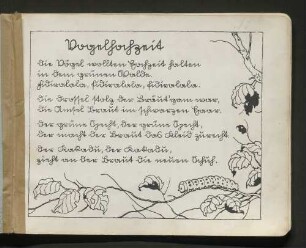 Vogelhochzeit
Die Vögel wollten Hochzeit halten
in dem grünen Walde.
Fidiralala, fidiralala, fidiralala.
Die Drossel stolz der Bräut'gam war,
die Amsel Braut im schwarzen Haar.
Der grüne Specht, der grüne Specht,
der macht der Braut das Kleid zurecht
Der Kakadu, der Kakadu,
zieht an der Braut die neuen Schuh.